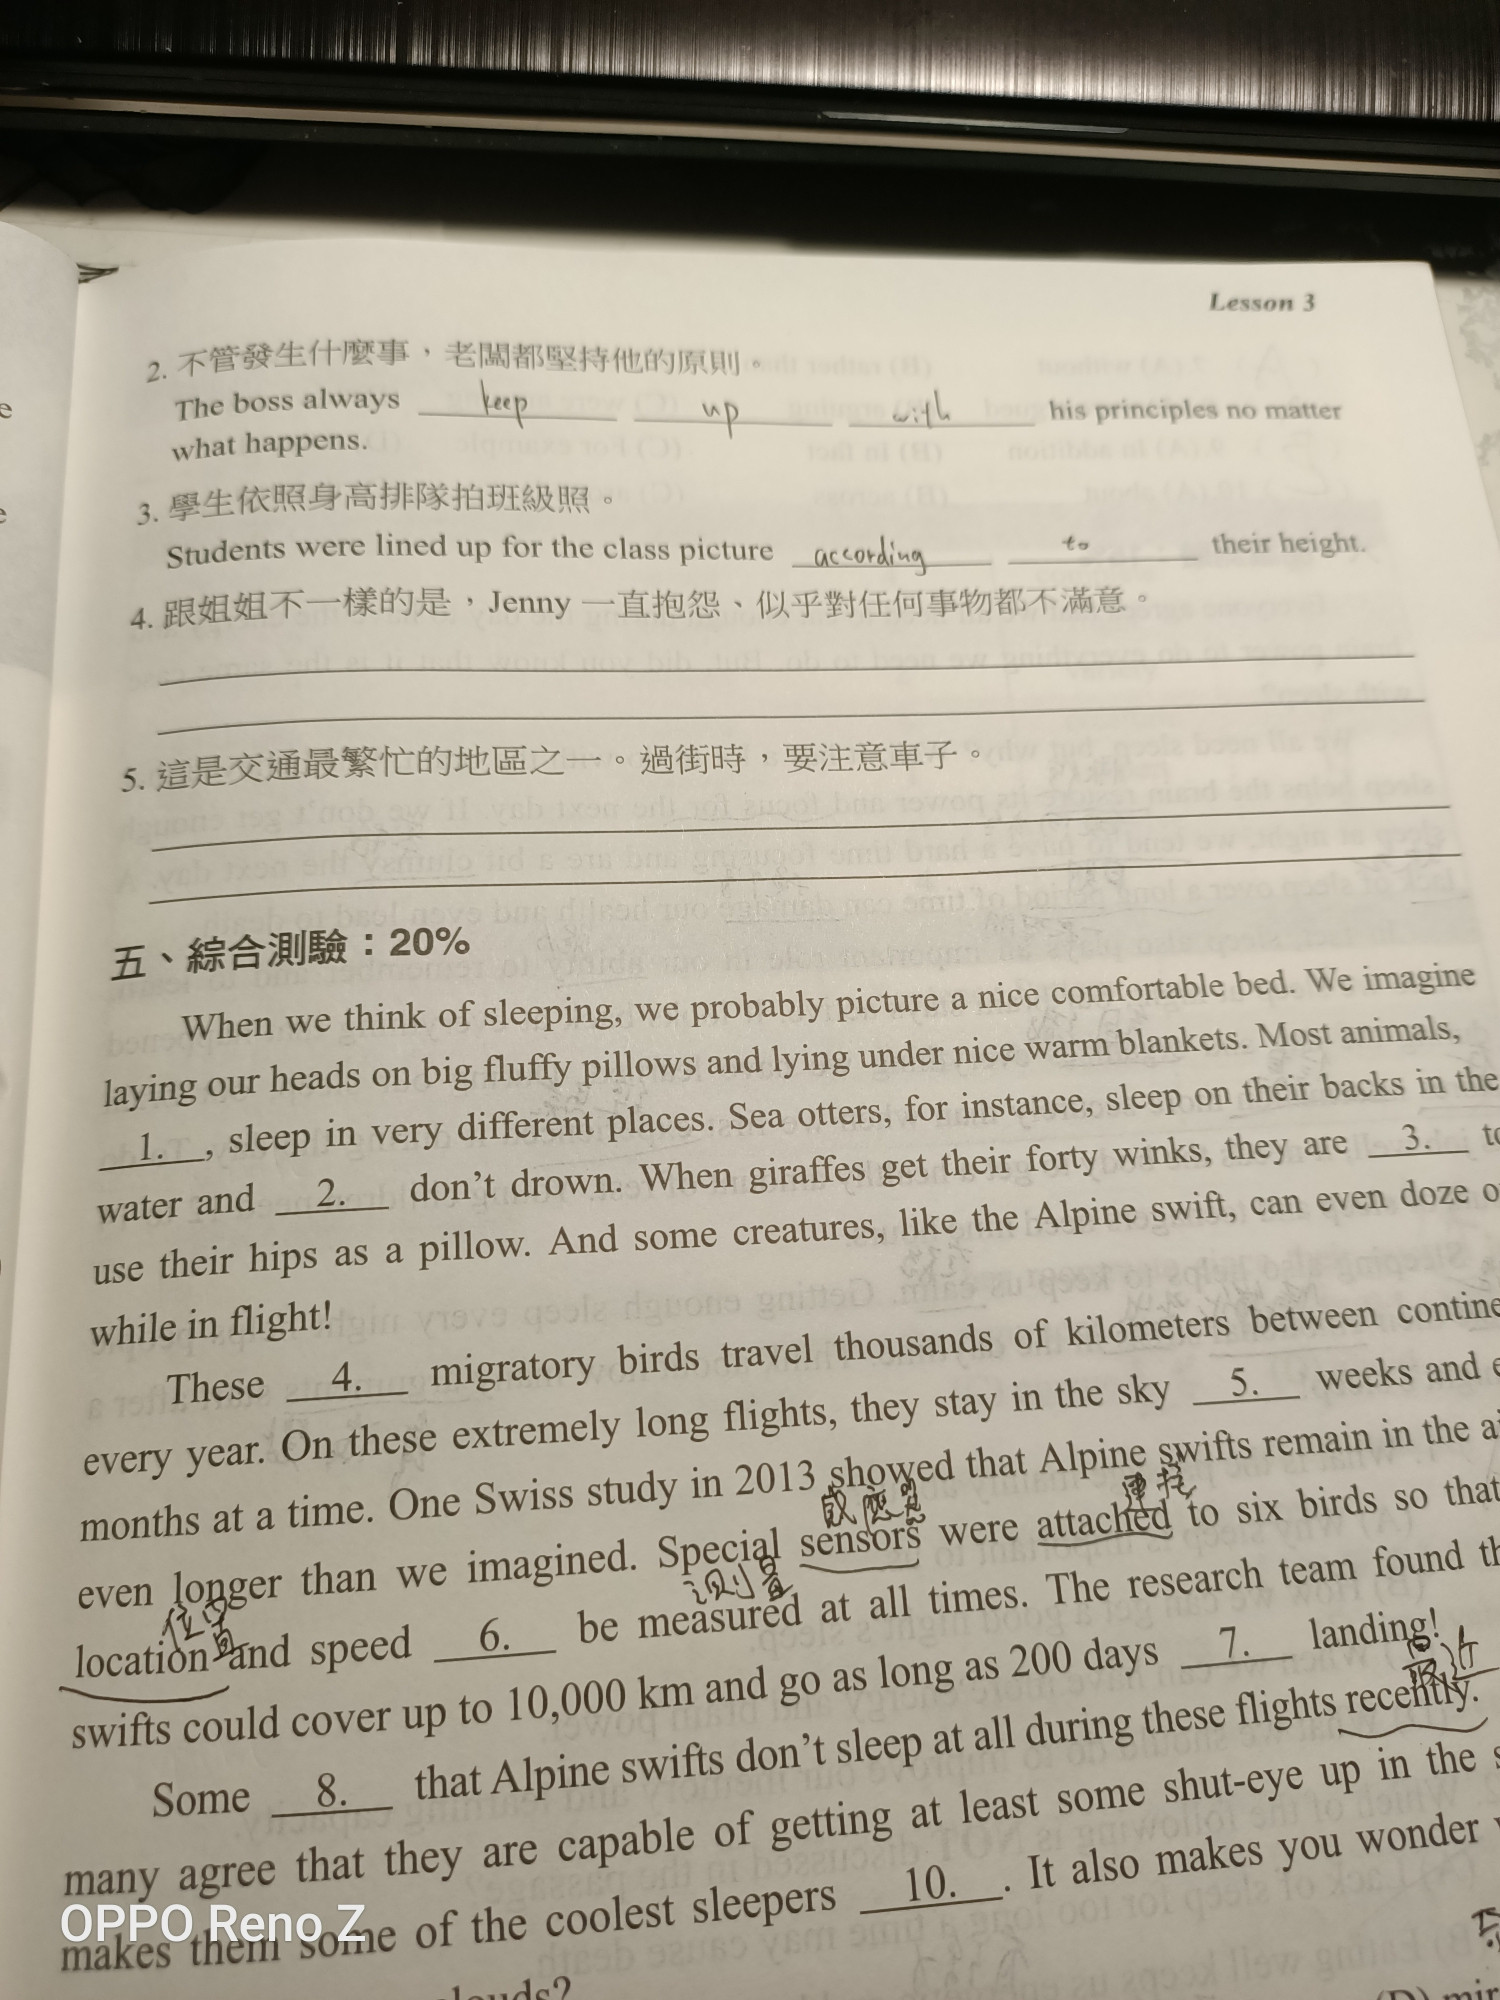 Lesson 3
2. 不管發生什麼事，老闆都堅持他的原則。
The boss always keep up with his principles no matter
what happens.
3. 學生依照身高排隊拍班級照。
Students were lined up for the class picture according to their height.
4. 跟姐姐不一樣的是，Jenny 一直抱怨、似乎對任何事物都不滿意。
5. 這是交通最繁忙的地區之一。過街時，要注意車子。
五、綜合測驗：20%
When we think of sleeping, we probably picture a nice comfortable bed. We imagine
laying our heads on big fluffy pillows and lying under nice warm blankets. Most animals,
1. , sleep in very different places. Sea otters, for instance, sleep on their backs in the
water and 2. don't drown. When giraffes get their forty winks, they are 3.
use their hips as a pillow. And some creatures, like the Alpine swift, can even doze
while in flight!
These 4. migratory birds travel thousands of kilometers between
every year. On these extremely long flights, they stay in the sky 5. weeks and
months at a time. One Swiss study in 2013 showed that Alpine swifts remain in the
感應器 連接
even longer than we imagined. Special sensors were attached to six birds so that
位置 測量
location and speed 6. be measured at all times. The research team found
swifts could cover up to 10,000 km and go as long as 200 days 7. landing!
Some 8. that Alpine swifts don't sleep at all during these flights recently.
many agree that they are capable of getting at least some shut-eye up in the
makes them some of the coolest sleepers 10. . It also makes you wonder
OPPO Reno Z